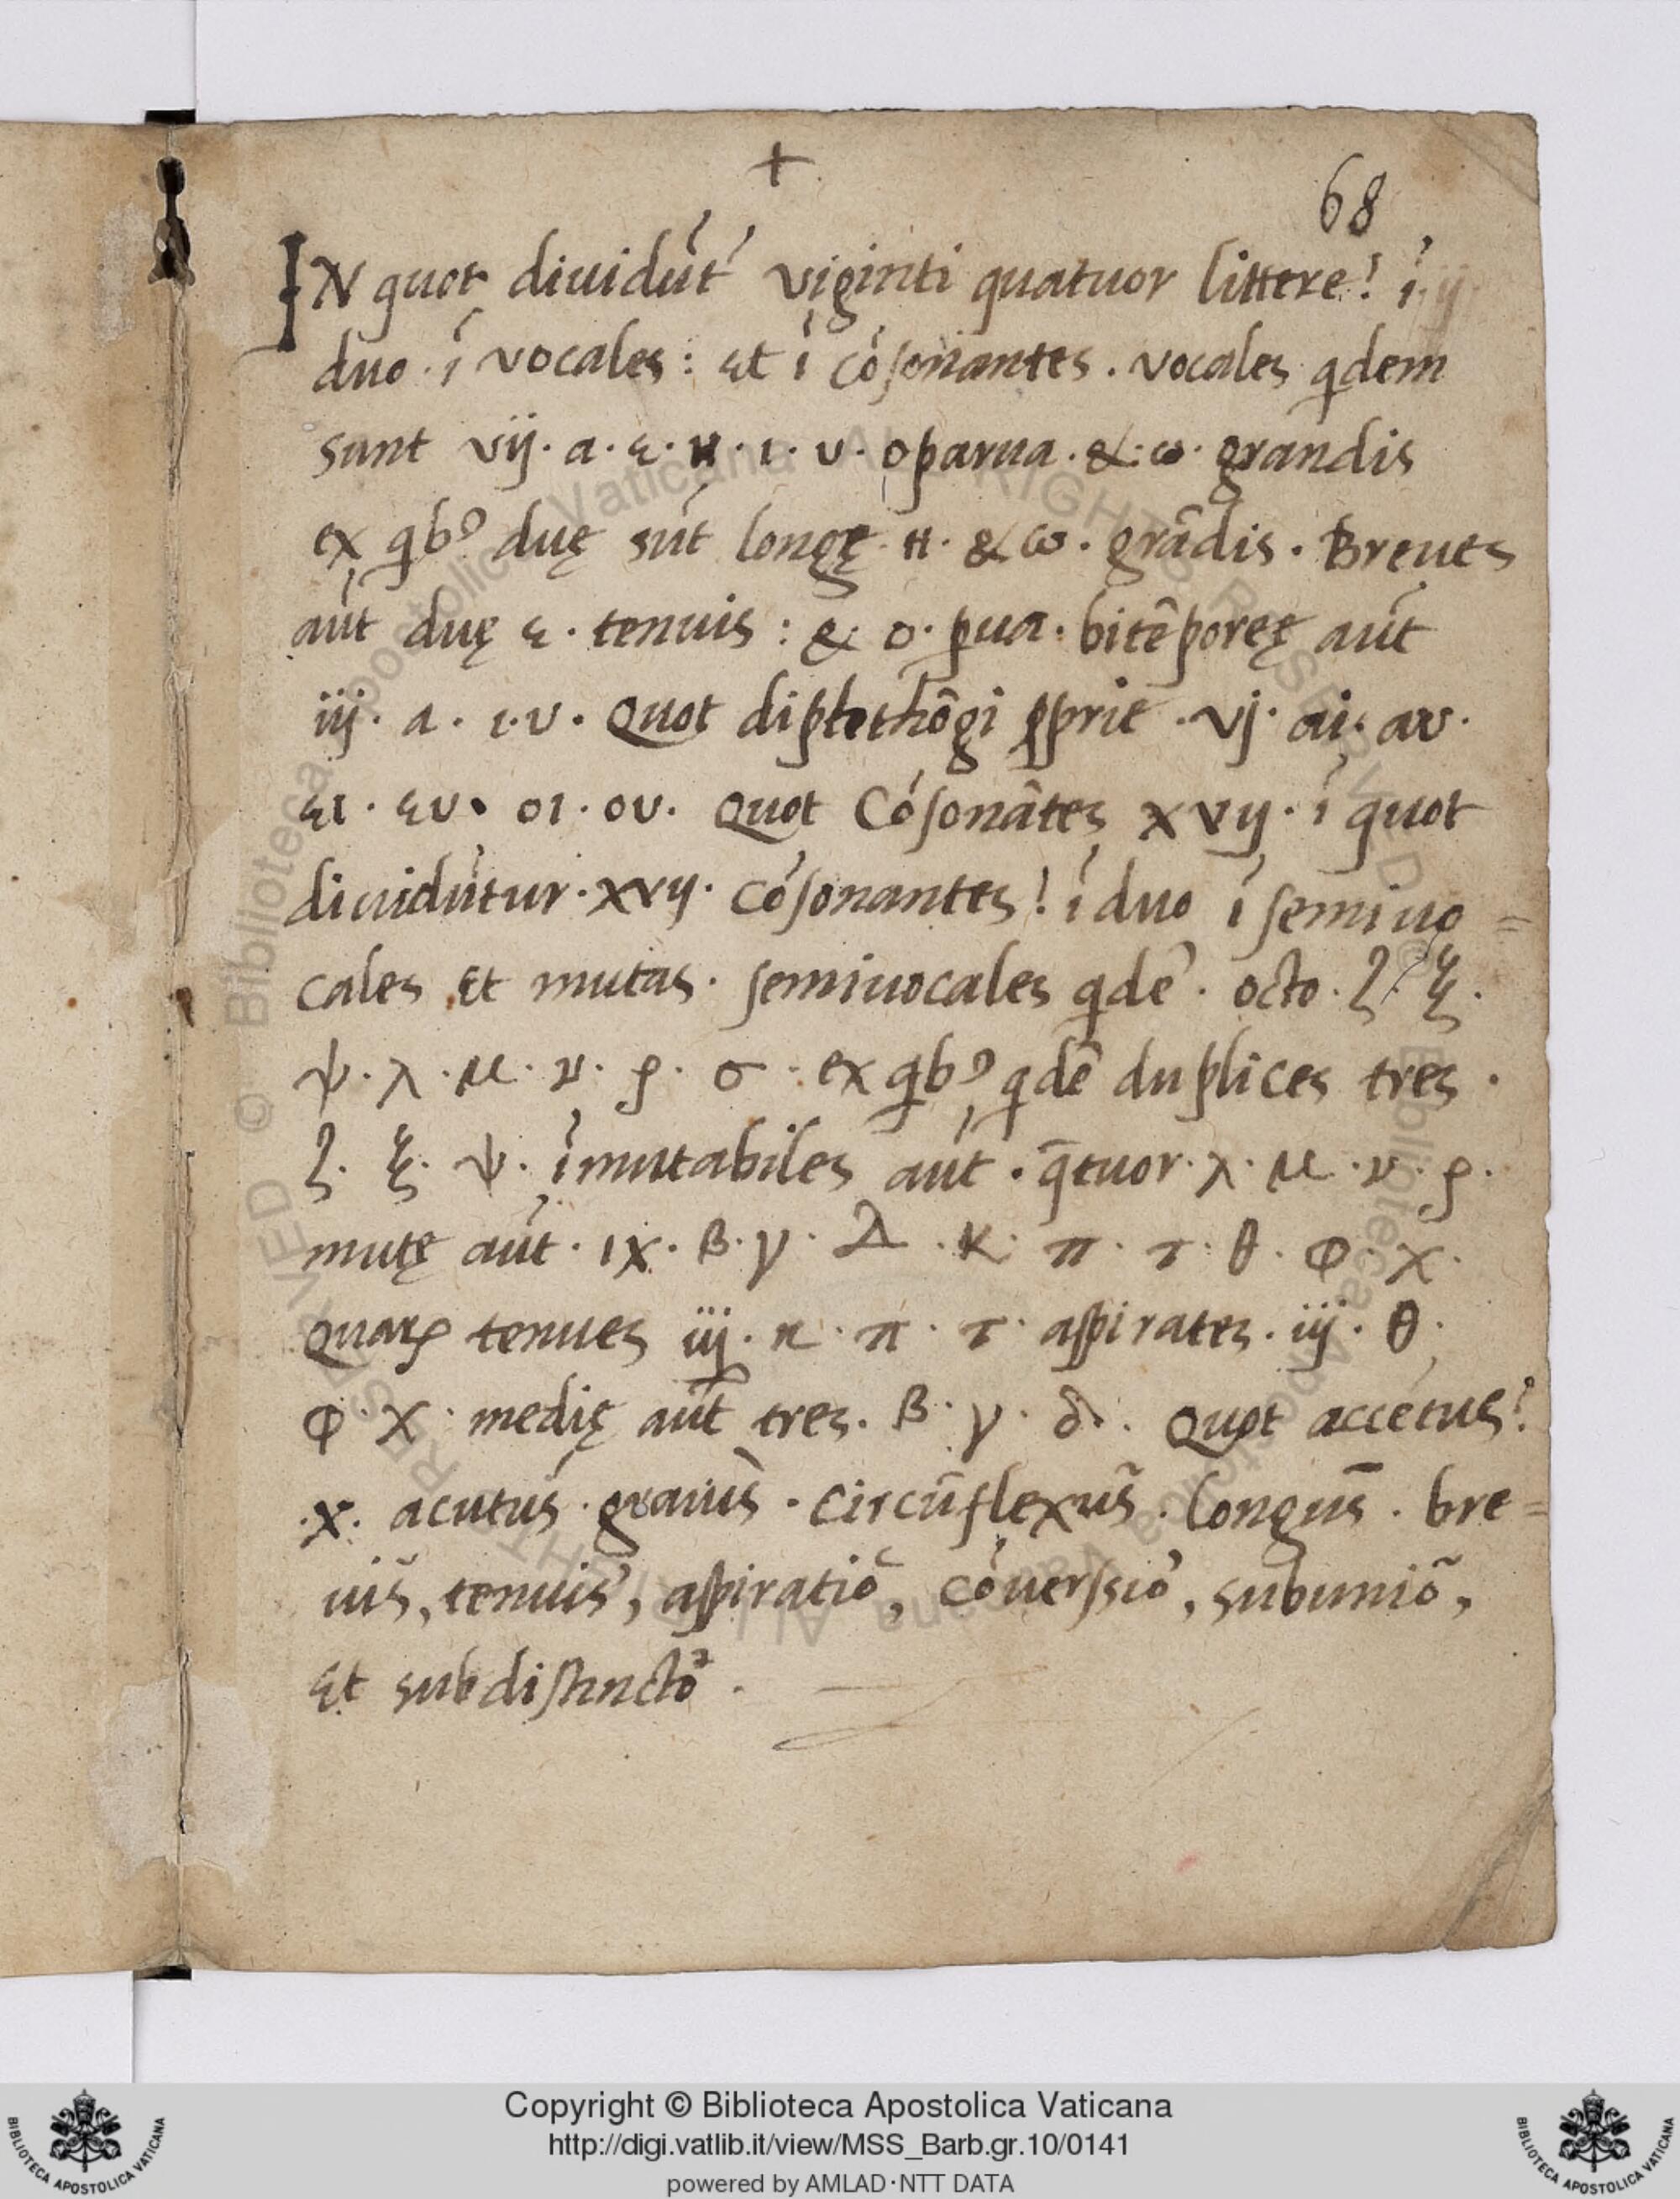 +
68
IN quot diuidút́ viginti quatuor littere! í ij
duo · í vocales : et í cósonantes . vocales qdem
sunt vij · a · ε · н · ι · υ · o parua · & · ω · grandis
ex qbꝰ duę sút longę · н · & ω · grãdis · Breues
aút duę ε · tenuis : & o · ꝑua · bitẽporeę aút
iij · a · ι · υ · Quot diphthõgi ꝓprie · vj · αi · αυ ·
ει · ευ · οι · ου · Quot Cósonãtes xvij · í quot
diuidútur · xvij · cósonantes! í duo í semiuo =
cales Et mutas · semiuocales qdẽ · octo · ζ · ξ ·
ψ · λ · μ · ν · ρ · σ · ex qbꝰ qdẽ duplices tres ·
ζ · ξ · ψ · ímutabiles aút · q̄tuor · λ · μ · ν · ρ ·
mutę aút · ıx · β · γ · Δ · κ · π · τ · θ · φ · χ ·
Quaꝝ tenues iij · κ · π · τ · aspirates · iij · θ ·
φ χ · medię aút tres · β · γ · δ · Quot accétus?
· x · acutus · grauis · circũflexus · longus · bre =
uis, tenuis, aspiratio, cóuerssio, subunio,
Et subdistincto .
Copyright © Biblioteca Apostolica Vaticana
http://digi.vatlib.it/view/MSS_Barb.gr.10/0141
powered by AMLAD·NTT DATA
BIBLIOTECA APOSTOLICA VATICANA
BIBLIOTECA APOSTOLICA VATICANA